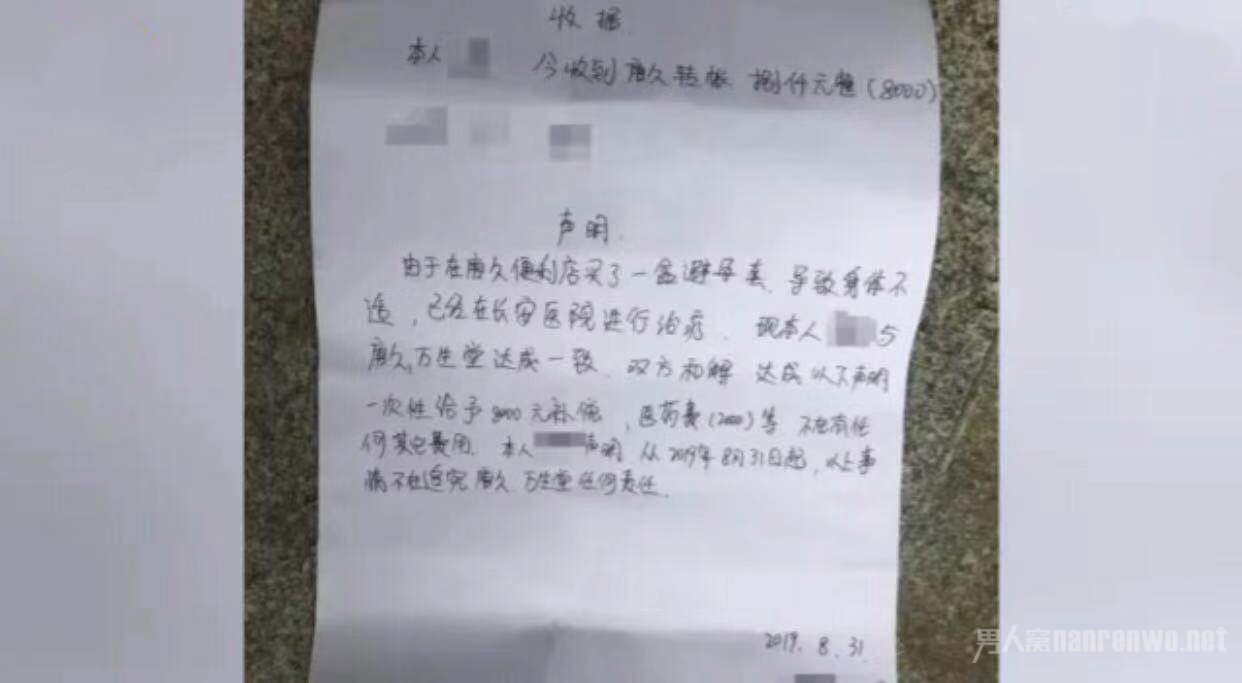 收据.
本人 今收到唐久转账 捌仟元整(8000)
声明.
由于在唐久便利店买了一盒避孕套、导致身体不
适，已经在长安医院进行治疗. 现本人 与
唐久,万生堂达成一致、双方和解 达成以下声明
一次性给予8000元补偿，医药费(2000)等 不在有任
何其它费用. 本人 声明 从2019年8月31日起，以上事
情不在追究唐久 万生堂任何责任.
2019. 8. 31
男人窝nanrenwo.net